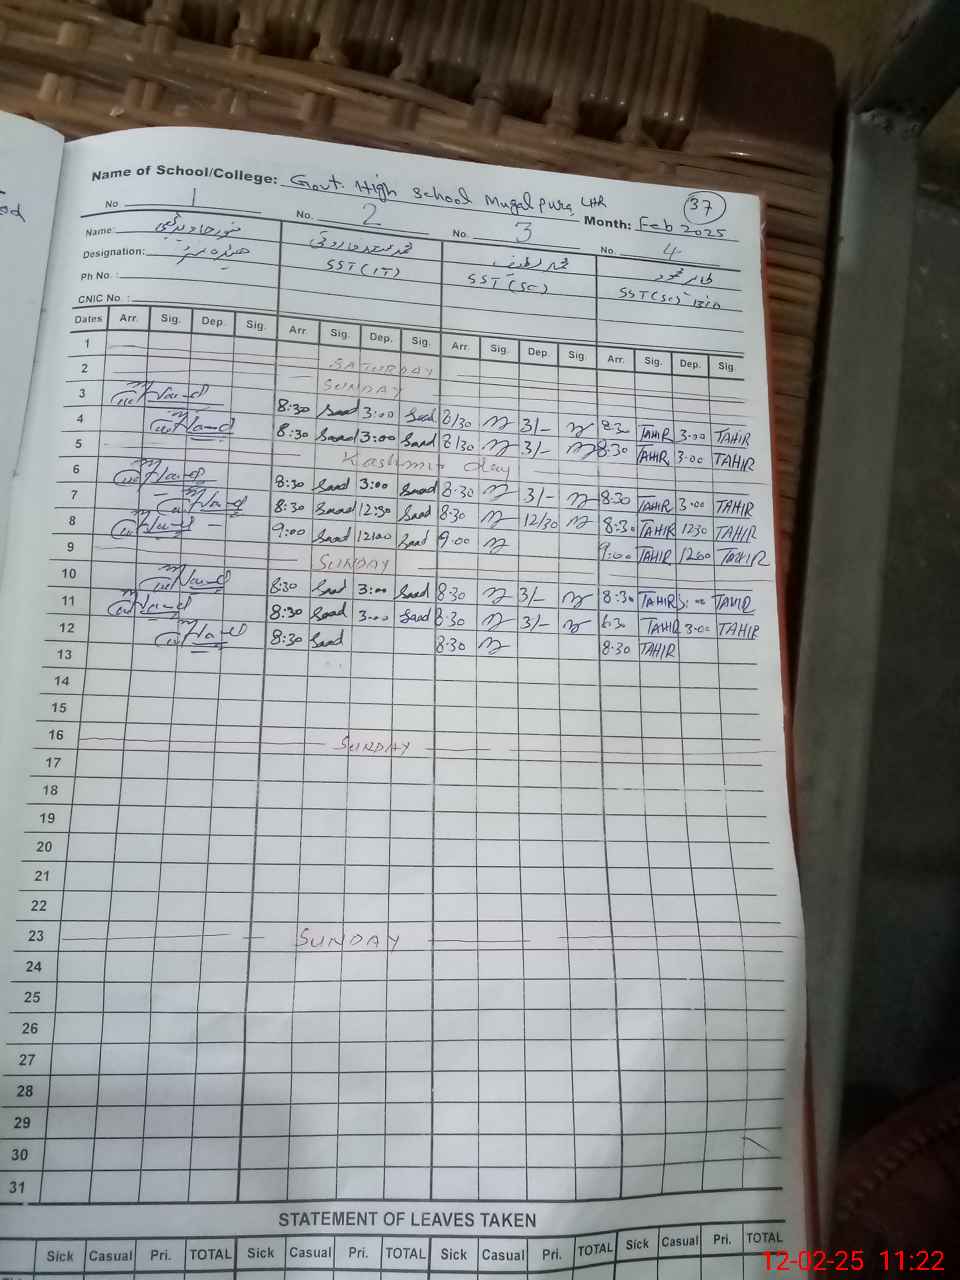 Name of School/College: Govt. High School Mugalpura, LHR Month: Feb 2025 37
No 1 No. 2 No. 3 No. 4
Name: محمد لطیف طاہر محمود
Designation: SST (IT) SST (SC) SST (SC)
Ph No. :
CNIC No. :
Dates Arr. Sig. Dep. Sig. Arr. Sig. Dep. Sig. Arr. Sig. Dep. Sig. Arr. Sig. Dep. Sig.
1 SATURDAY
2 SUNDAY
3 8:30 Saad 3:00 Saad 8/30 3/- 8:30 TAHIR 3:00 TAHIR
4 8:30 Saad 3:00 Saad 8/30 3/- 8:30 TAHIR 3:00 TAHIR
5 Kashmir day
6 8:30 Saad 3:00 Saad 8:30 3/- 8:30 TAHIR 3:00 TAHIR
7 8:30 Saad 12:30 Saad 8:30 12/30 8:30 TAHIR 1230 TAHIR
8 9:00 Saad 12:00 Saad 9:00 9:00 TAHIR 1200 TAHIR
9 SUNDAY
10 8:30 Saad 3:00 Saad 8:30 3/- 8:30 TAHIR 3:00 TAHIR
11 8:30 Saad 3:00 Saad 8:30 3/- 8:30 TAHIR 3:00 TAHIR
12 8:30 Saad 8:30 8:30 TAHIR
13
14
15
16 SUNDAY
17
18
19
20
21
22
23 SUNDAY
24
25
26
27
28
29
30
31
STATEMENT OF LEAVES TAKEN
Sick Casual Pri. TOTAL Sick Casual Pri. TOTAL Sick Casual Pri. TOTAL Sick Casual Pri. TOTAL
12-02-25 11:22